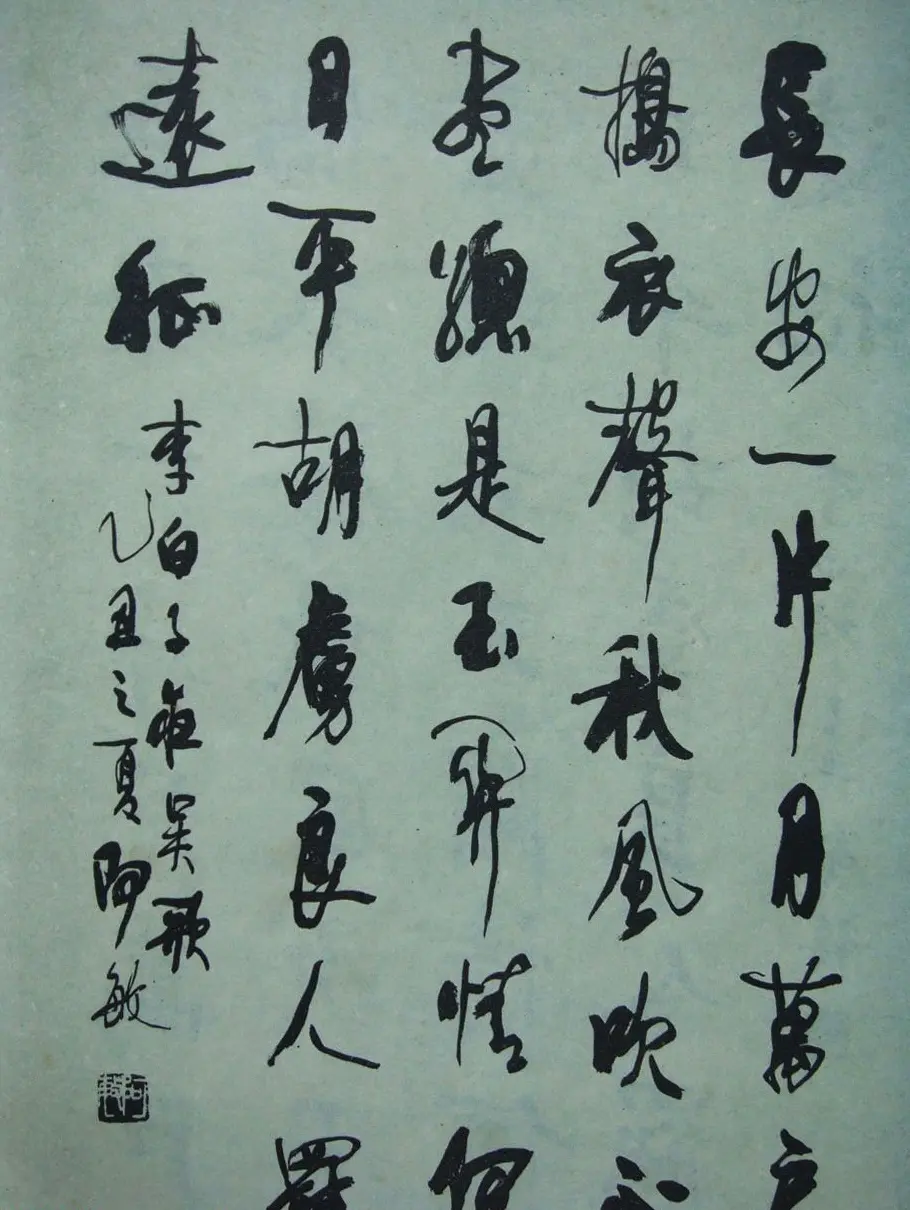 長安一片月萬戶
擣衣聲秋風吹不
盡總是玉關情何
日平胡虜良人罷
遠征
李白子夜吳歌
乙丑之夏阿敏